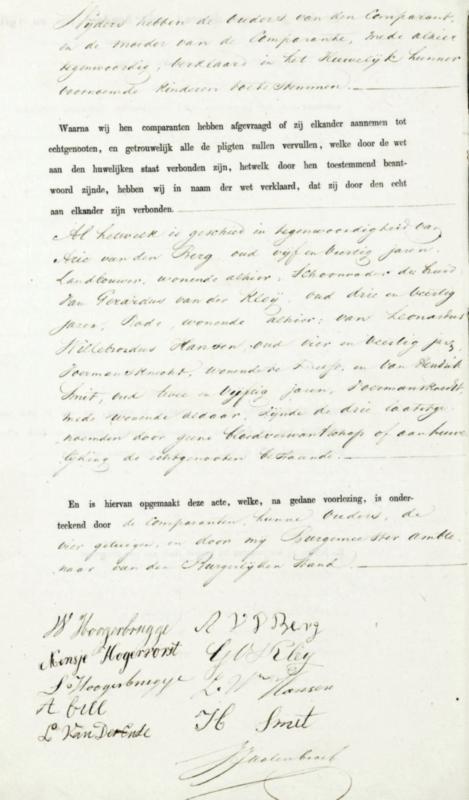 Wijders hebben de ouders van den Comparant,
en de moeder van de Comparante, mede alhier
tegenwoordig, verklaard in het Huwelijk hunner
voornoemde kinderen toetestemmen.
Waarna wij hen comparanten hebben afgevraagd of zij elkander aannemen tot
echtgenooten, en getrouwelijk alle de pligten zullen vervullen, welke door de wet
aan den huwelijken staat verbonden zijn, hetwelk door hen toestemmend beant-
woord zijnde, hebben wij in naam der wet verklaard, dat zij door den echt
aan elkander zijn verbonden.
Al hetwelk is geschied in tegenwoordigheid van
Arie van den Berg oud vijf en veertig jaren,
Landbouwer, wonende alhier, Schoonvader der bruid
van Gerardus van der Kleij, oud drie en veertig
jaren, Bode, wonende alhier; van Leonardus
Willebrordus Hansen, oud vier en veertig jren,
Voermansknecht, wonende te en van Hendrik
Smit, oud twee en vijftig jaren, Voermansknecht,
mede wonende aldaar, zijnde de drie laatstge-
noemden door geene bloedverwantschap of aanhuwe-
lijking de echtgenooten bestaande.
En is hiervan opgemaakt deze acte, welke, na gedane voorlezing, is onder-
teekend door de Comparanten, hunne Ouders, de
vier getuigen, en door mij Burgemeester ambte-
naar van den Burgerlijken Stand.
W Hoogerbrugge A V D Berg
Nensje Hogervorst G V D Kley
L Hoogerbrugge L W Hansen
A Cell H Smit
L Van Der Ende